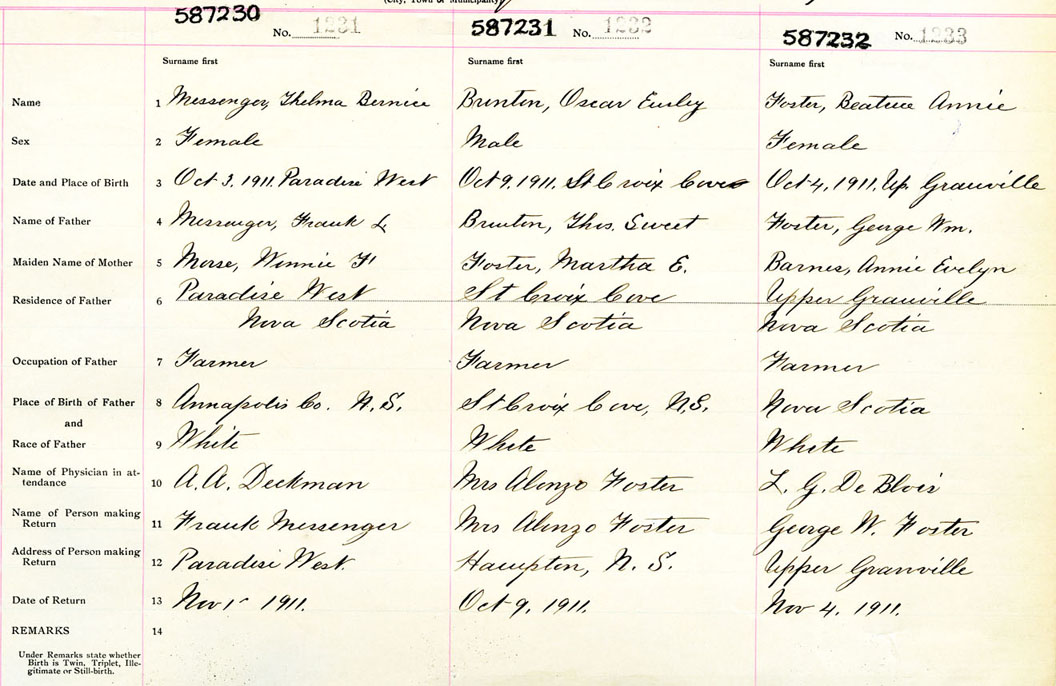 (City, Town or Municipality)
587230 No. 1231 587231 No. 1232 587232 No. 1233
Surname first Surname first Surname first
Name 1 Messenger, Thelma Bernice Brinton, Oscar Foster, Beatrice Annie
Sex 2 Female Male Female
Date and Place of Birth 3 Oct 3, 1911, Paradise West Oct 9, 1911, St Croix Cove Oct 4, 1911, Up. Granville
Name of Father 4 Messenger, Frank L Brinton, Thos. Sweet Foster, George Wm.
Maiden Name of Mother 5 Morse, Winnie F Foster, Martha E. Barnes, Annie Evelyn
Residence of Father 6 Paradise West St Croix Cove Upper Granville
Nova Scotia Nova Scotia Nova Scotia
Occupation of Father 7 Farmer Farmer Farmer
Place of Birth of Father 8 Annapolis Co. N.S. St Croix Cove, N.S. Nova Scotia
and
Race of Father 9 White White White
Name of Physician in at-
tendance 10 A.A. Deckman Mrs Alonzo Foster L. G. De Blois
Name of Person making
Return 11 Frank Messenger Mrs Alonzo Foster George W. Foster
Address of Person making
Return 12 Paradise West. Hampton, N. S. Upper Granville
Date of Return 13 Nov 1911. Oct 9, 1911. Nov 4, 1911.
REMARKS 14
Under Remarks state whether
Birth is Twin, Triplet, Ille-
gitimate or Still-birth.